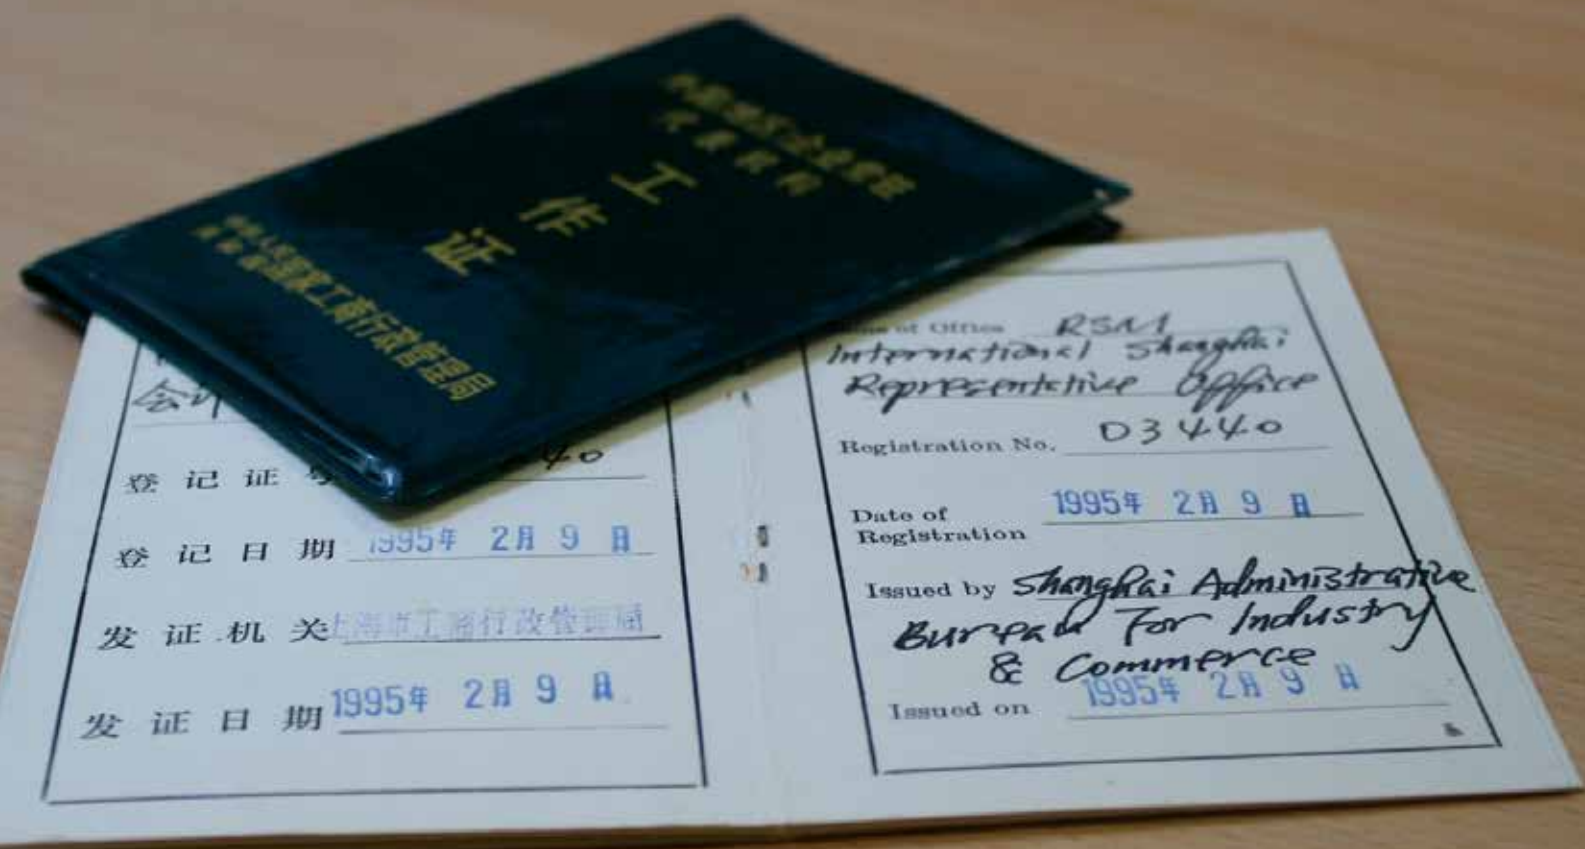 外国(地区)企业常驻
代表机构
工作证
中华人民
共和国国家工商行政管理局
会计
登记证号 40
登记日期 1995年 2月 9 日
发证机关 上海市工商行政管理局
发证日期 1995年 2月 9 日
of Office RSM
International Shanghai
Representative Office
Registration No. D3440
Date of
Registration 1995年 2月 9 日
Issued by Shanghai Administrative
Bureau For Industry
& Commerce
Issued on 1995年 2月 9 日